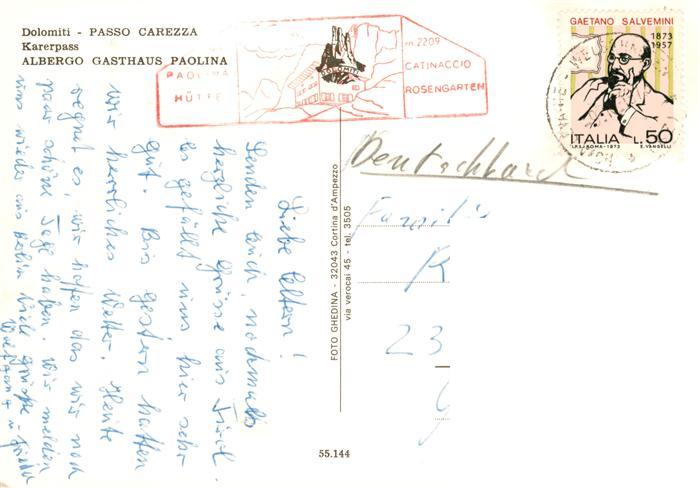 Dolomiti - PASSO CAREZZA
Karerpass
ALBERGO GASTHAUS PAOLINA
PAOLINA
HÜTTE
DOLOMITI
m. 2209
CATINACCIO
ROSENGARTEN
GAETANO SALVEMINI
1873
1957
ITALIA L.50
I.P.S.-ROMA-1973 E. VANGELLI
Liebe Eltern!
Senden Euch nochmals
herzliche Grüsse aus Tirol.
Es gefällt uns hier sehr
gut. Bis gestern hatten
wir herrliches Wetter. Heute
regnet es, wir hoffen das wir noch
paar schöne Tage haben. Wir melden
uns wieder aus Berlin Viele Grüsse
Wolfgang u.
FOTO GHEDINA - 32043 Cortina d'Ampezzo
via verocai 45 - tel. 3505
Deutschland
Familie
R
23
55.144